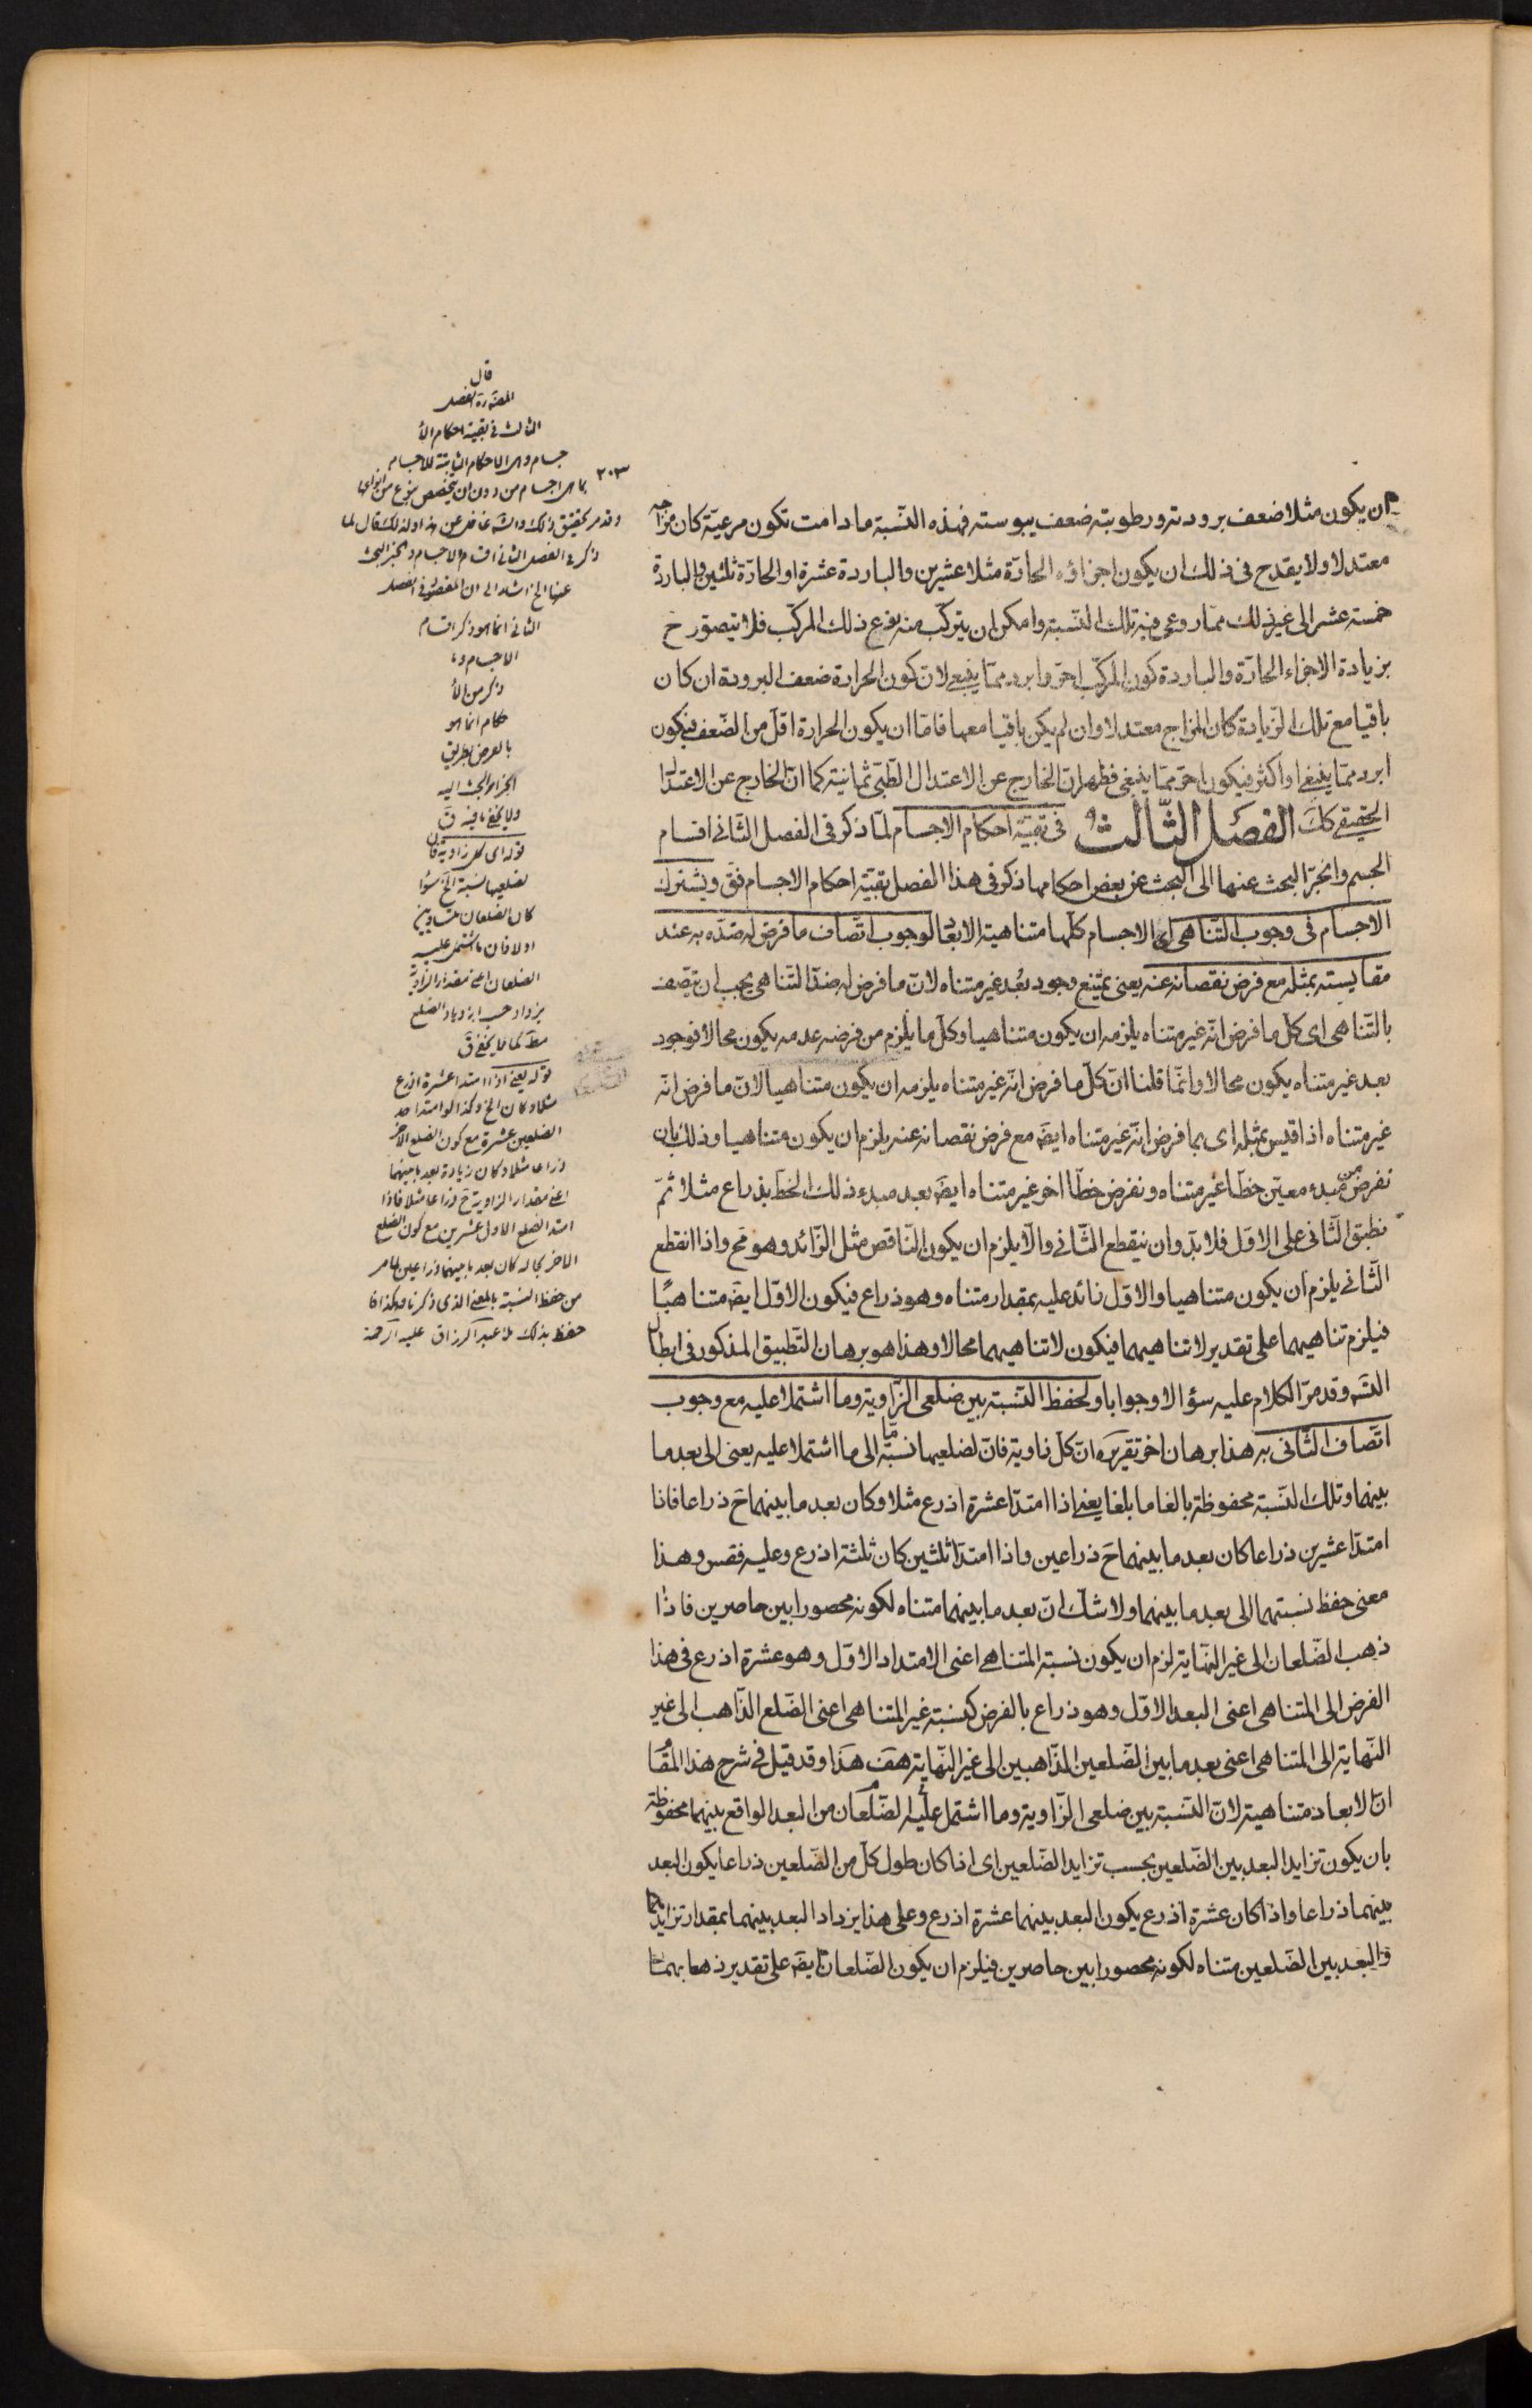 ان يكون مثلا ضعف برودته ورطوبته ضعف يبوسته فهذه النسبة ما دامت تكون مرعيّة كان مزاجه
معتدلا ولا يقدح فى ذلك ان يكون اجزاؤه الحارّة مثلا عشرين والباردة عشرة او الحارّة ثلثين والباردة
خمسة عشر الى غير ذلك ممّا روعى فيه تلك النّسبة وامكن ان يتركّب منه نوع ذلك المركّب فلا يتصوّر ح
بزيادة الاجزاء الحارّة والباردة كون المركّب احرّ وابرد ممّا ينبغى لانّ كون الحرارة ضعف البرودة ان كان
باقيا مع تلك الزّيادة كان المزاج معتدلا وان لم يكن باقيا معها فامّا ان يكون الحرارة اقلّ من الضّعف فيكون
ابرد ممّا ينبغى او اكثر فيكون احرّ ممّا ينبغى فظهر انّ الخارج عن الاعتدال الطّبّى ثمانية كما انّ الخارج عن الاعتدال
الحقيقى كك الفصل الثّالث فى بقيّة احكام الاجسام لمّا ذكر فى الفصل الثّانى اقسام
الجسم وانجرّ البحث عنها الى البحث عن بعض احكامها ذكر فى هذا الفصل بقيّة احكام الاجسام فقى ويشترك
الاجسام فى وجوب التّناهى اى الاجسام كلّها متناهية الابعاد لوجوب اتّصاف ما فرض له ضدّه به عند
مقايسته بمثله مع فرض نقصانه عنه يعنى يمتنع وجود بُعد غير متناه لانّ ما فرض له ضدّ التّناهى يجب ان يتّصف
بالتّناهى اى كلّ ما فرض انّه غير متناه يلزمه ان يكون متناهيا وكلّ ما يلزم من فرضه عدمه يكون محالا فوجود
بعد غير متناه يكون محالا وانّما قلنا انّ كلّ ما فرض انّه غير متناه يلزمه ان يكون متناهيا لانّ ما فرض انّه
غير متناه اذا قيس بمثله اى بما فرض انّه غير متناه ايضَ مع فرض نقصانه عنه يلزم ان يكون متناهيا وذلك بان
نفرض من مبدء معيّن خطّا غير متناه ونفرض خطّا اخر غير متناه ايضَ بعد مبدء ذلك الخطّ بذراع مثلا ثمّ
نطبّق الثّانى على الاوّل فلا بدّ وان ينقطع الثّانى والّا يلزم ان يكون النّاقص مثل الزّائد وهو مح واذا انقطع
الثّانى يلزم ان يكون متناهيا والاوّل زائد عليه بمقدار متناه وهو ذراع فيكون الاوّل ايضَ متناهيًا
فيلزم تناهيهما على تقدير لا تناهيهما فيكون لا تناهيهما محالا وهذا هو برهان التّطبيق المذكور فى ابطال
التّسَ وقد مرّ الكلام عليه سؤالا وجوابا ولحفظ النّسبة بين ضلعى الزّاوية وما اشتملا عليه مع وجوب
اتّصاف الثّانى به هذا برهان اخر تقريره انّ كلّ زاوية فانّ لضلعيها نسبة مّا الى ما اشتملا عليه يعنى الى بعد ما
بينهما وتلك النّسبة محفوظة بالغا ما بلغا يعنى اذا امتدّا عشرة اذرع مثلا وكان بعد ما بينهما ح ذراعا فاذا
امتدّا عشرين ذراعا كان بعد ما بينهما ح ذراعين واذا امتدّا ثلثين كان ثلثة اذرع وعليه فقس وهذا
معنى حفظ نسبتهما الى بعد ما بينهما ولا شكّ انّ بعد ما بينهما متناه لكونه محصورا بين حاصرين فاذا
ذهب الضّلعان الى غير النّهاية لزم ان يكون نسبة المتناهى اعنى الامتداد الاوّل وهو عشرة اذرع فى هذا
الفرض الى المتناهى اعنى البعد الاوّل وهو ذراع بالفرض كنسبة غير المتناهى اعنى الضّلع الذّاهب الى غير
النّهاية الى المتناهى اعنى بعد ما بين الضّلعين الذّاهبين الى غير النّهاية هف هذا وقد قيل فى شرح هذا المقا
انّ الابعاد متناهية لانّ النّسبة بين ضلعى الزّاوية وما اشتمل عليه الضّلعان من البعد الواقع بينهما محفوظة
بان يكون تزايد البعد بين الضّلعين بحسب تزايد الضّلعين اى اذا كان طول كلّ من الضّلعين ذراعا يكون البعد
بينهما ذراعا واذا كان عشرة اذرع يكون البعد بينهما عشرة اذرع وعلى هذا يزداد البعد بينهما بمقدار تزايدهما
والبعد بين الضّلعين متناه لكونه محصورا بين حاصرين فيلزم ان يكون الضّلعان ايضَ على تقدير ذهابهما
قال
المصَ ره الفصل
الثالث فى بقية احكام الأ
جسام وهى الاحكام الثابتة للاجسام
بما هى اجسام من دون ان يتخصص بنوع من انواعها
٢٠٣
وقد مر تحقيق ذلك والشَ غافل عن هذا ولذلك قال لما
ذكر فى الفصل الثانى اقسام الاجسام وانجر البحث
عنها الخ اشار الى ان المقصود فى الفصل
الثانى انما هو ذكر اقسام
الاجسام وما
ذكر من الأ
حكام انما هو
بالعرض بطريق
انجرار البحث اليه
ولا يخفى ما فيه ق
قوله اى كل زاوية فان
لضلعيها نسبة الخ سواء
كان الضلعان متساويين
او لا فان ما اشتمل عليه
الضلعان اعنى مقدار الزاوية
يزداد حسب ازدياد الضلع
مطَ كما لا يخفى ق
قوله يعنى اذا امتدا عشرة اذرع
مثلا وكان الخ وكذا لو امتدا احد
الضلعين عشرة مع كون الضلع الاخر
ذراعا مثلا وكان زيادة بعد ما بينهما
اعنى مقدار الزاوية ح ذراعا مثلا فاذا
امتد الضلع الاول عشرين مع كون الضلع
الاخر بحاله كان بعد ما بينهما ذراعين لما مر
من حفظ النسبة بالمعنى الذى ذكرنا وهكذا فا
حفظ بذلك ملا عبد الرزاق عليه الرحمة